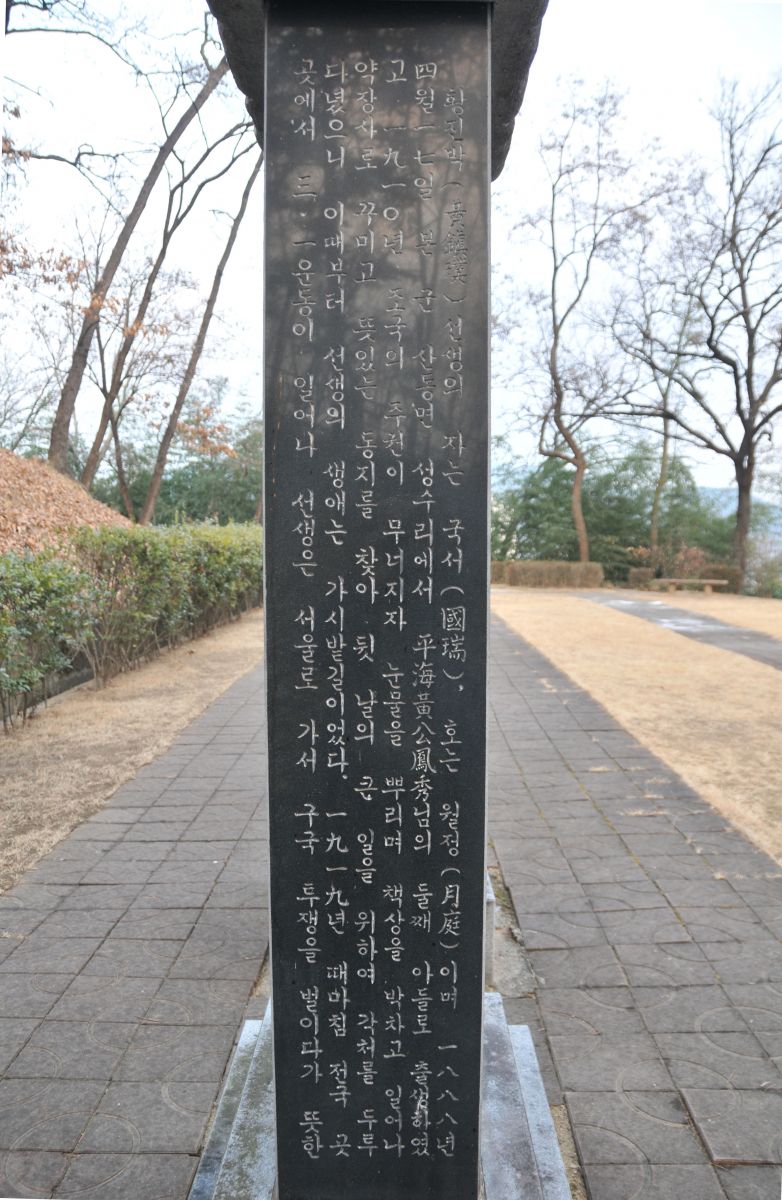 황진박(黃鎭璞)선생의 자는 국서(國瑞), 호는 월정(月庭)이며 一八八八년
四월一七일 본군 산동면 성수리에서 平海黃公鳳秀님의 둘째 아들로 출생하였
고 一九一○년 조국의 주권이 무너지자 눈물을 뿌리며 책상을 박차고 일어나
약장사로 꾸미고 뜻있는 동지를 찾아 뒷날의 큰 일을 위하여 각처를 두루
다녔으니 이때부터 선생의 생애는 가시밭길이었다. 一九一九년 때마침 전국 곳
곳에서 三·一운동이 일어나 선생은 서울로 가서 구국 투쟁을 벌이다가 뜻한